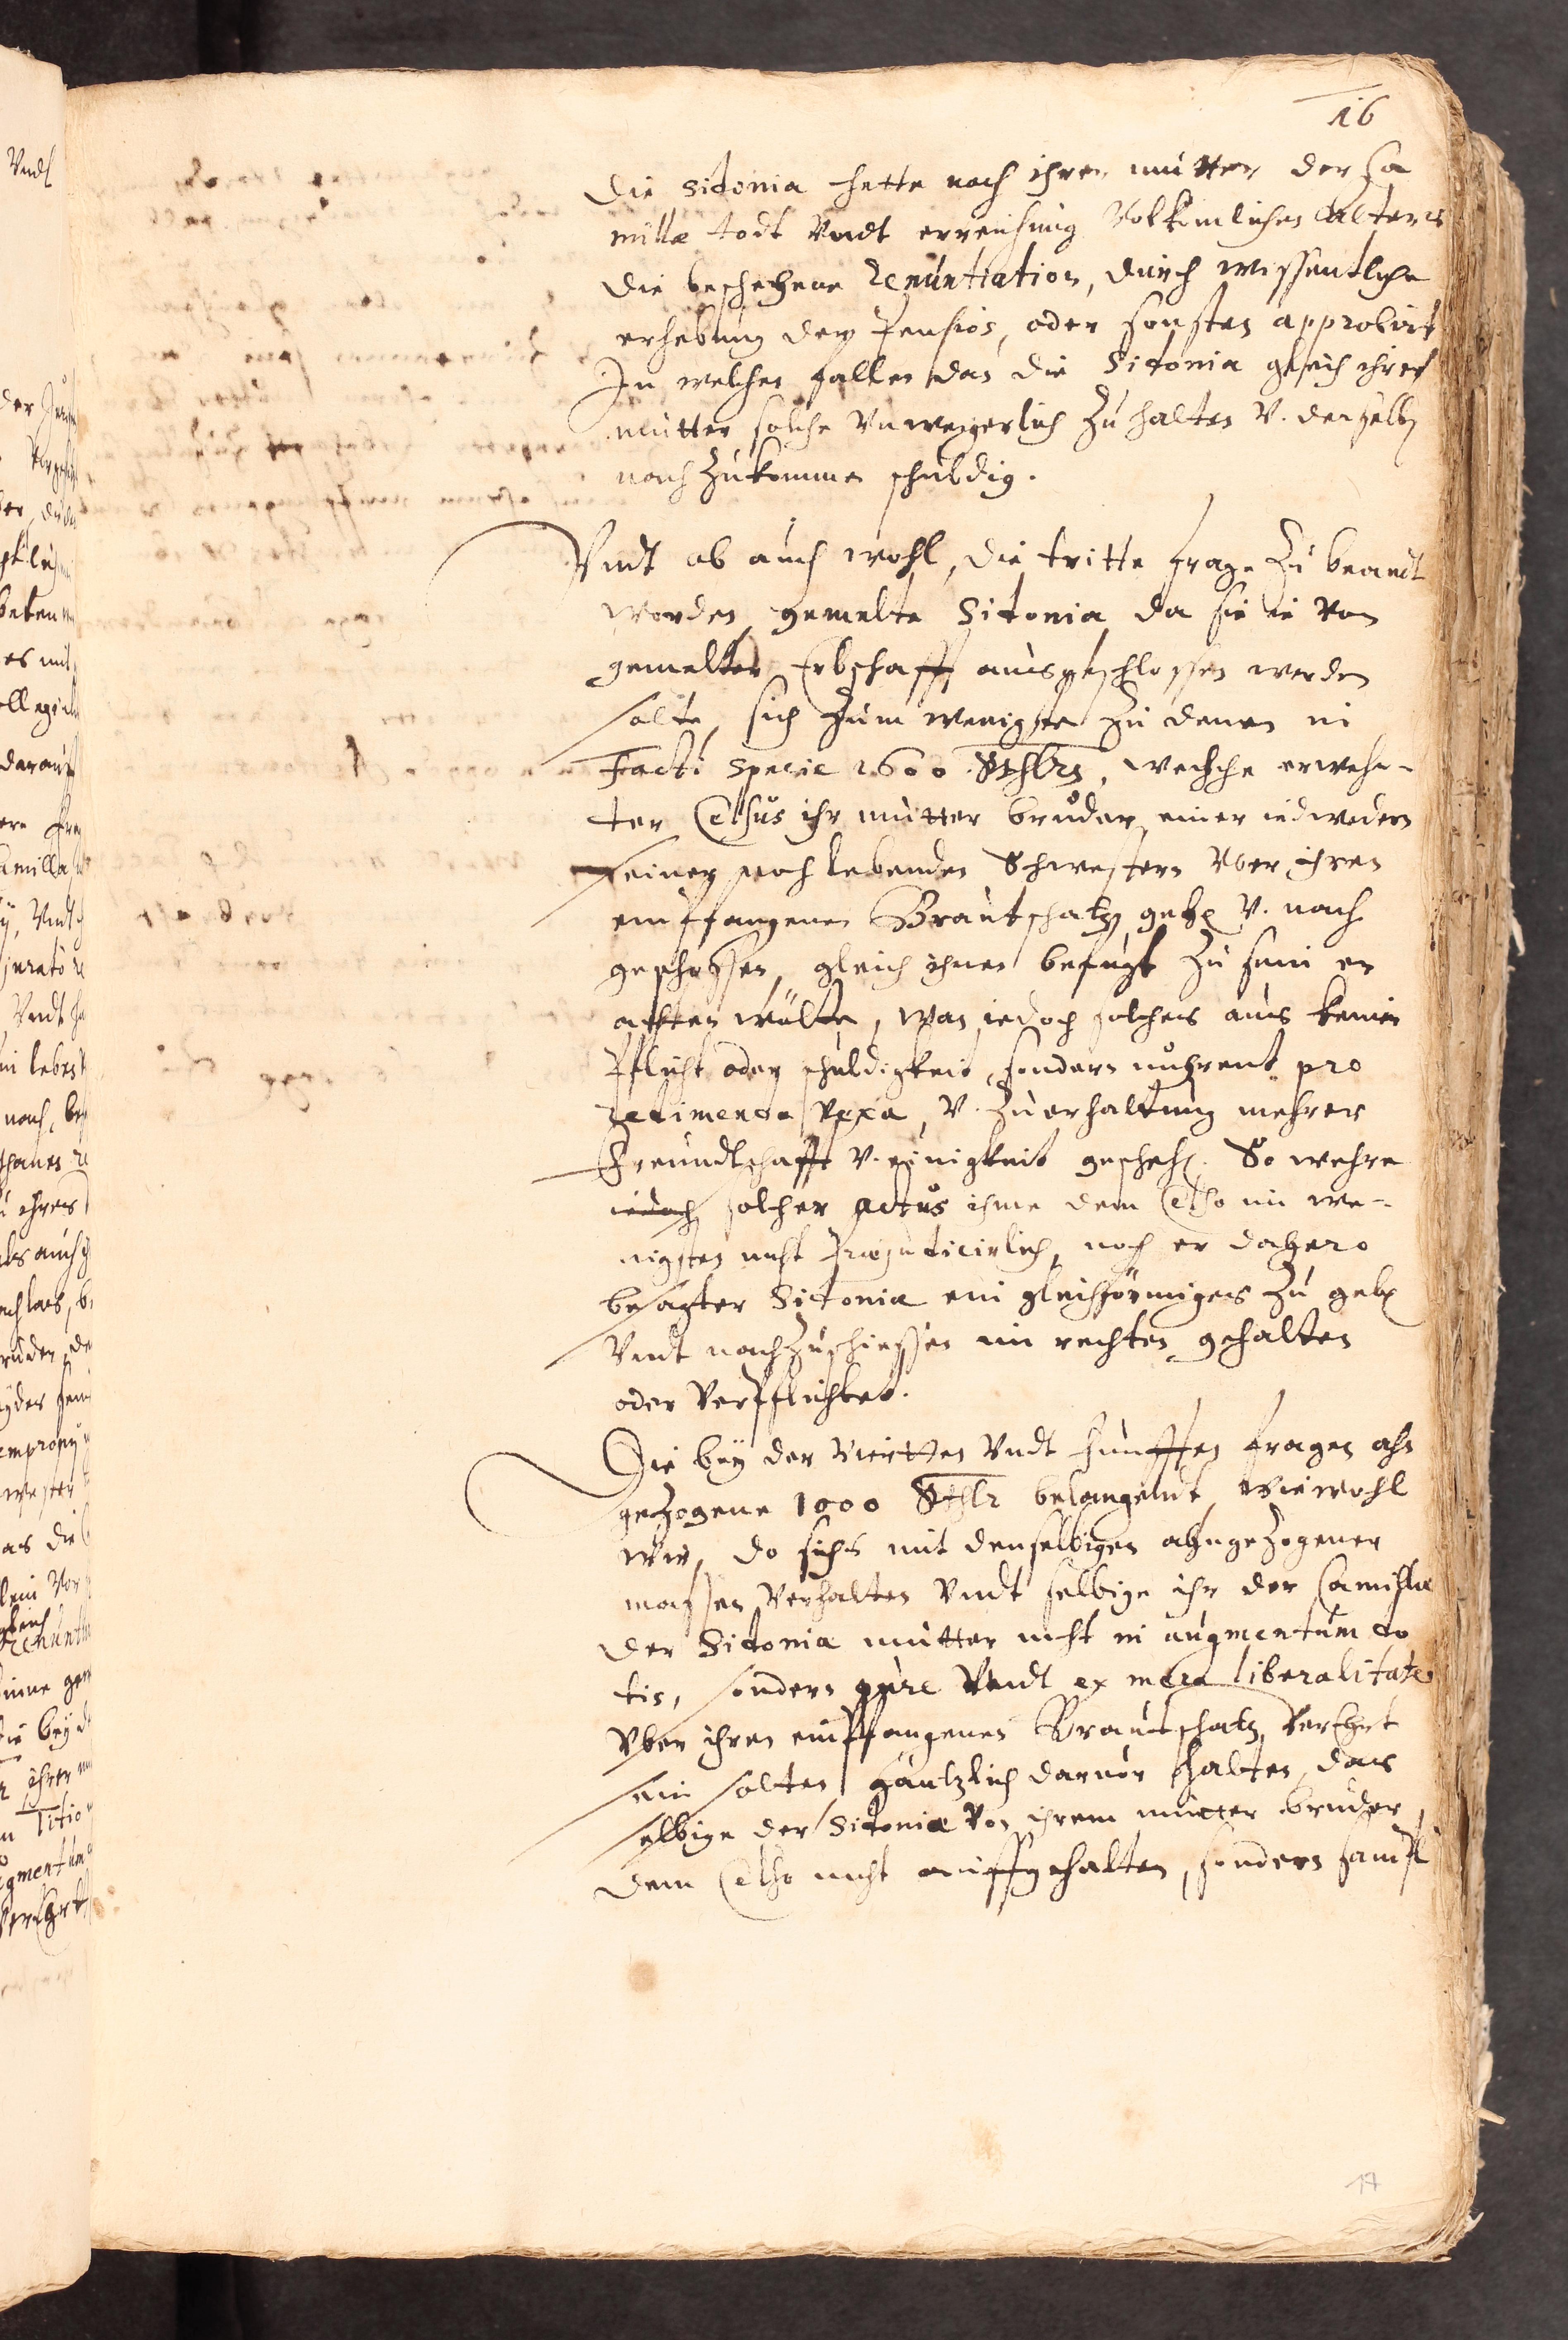 16
die Sidonia hette nach ihrer mutter der Ca
millæ todt Vndt erreichung Volkömliches Alters
die beschehene renuntiation, durch wissentliche
erhebung der Pension, oder sonsten approbirt
In welchen fallen dan die Sidonia gleich ihrer
mutter solche Vnweigerlich Zu halten V. derselben
nach Zukommen schuldig.
Vndt ob auch wohl, die tritte frage Zu beandt
worden, gemelte Sidonia da sie ie Von
gemelter Erbschafft ausgeschlossen werden
solte, sich Zum wenigsten Zu denen in
Facti specie 1600 Rthlrn, welche erwehn-
ter Celsus ihr mutter bruder einer iedwedern
seiner noch lebenden Schwestern Vber ihren
empfangenen Brautschatz geben V. nach
geschossen, gleich ihnen befugt Zu sein er
achten wolte, Wan iedoch solches aus keiner
Pflicht oder schuldigkeit, sondern nuhrent pro
redimenda Vexa, V. Zu erhaltung mehrer
Freundtschafft V. einigkeit geschehen. So wehre
iedoch solcher Actus ihme dem Celso im we-
nigsten nicht Præjudicirlich, noch er dahero
besagter Sidoniæ ein gleichförmiges Zu geben
Vndt nachZuschiessen im rechten gehalten
oder Verpflichtet.
Die bey der Viertten Vndt funfften fragen ahn
geZogene 1000 Rthlr belangendt, Wiewohl
wir, do sichs mit denselbigen ahngeZogener
massen Verhalten Vndt selbige ihr der Camillæ
der Sidoniæ mutter nicht in augmentum do
tis, sondern pure Vndt ex mera liberalitate
Vber ihren empfangenen Brautschatz Verehrt
sein solten, gäntzlich darvor halten, das
selbige der Sidoniæ Von ihrem mutter bruder,
dem Celso nicht auffgehalten, sondern sampt
17